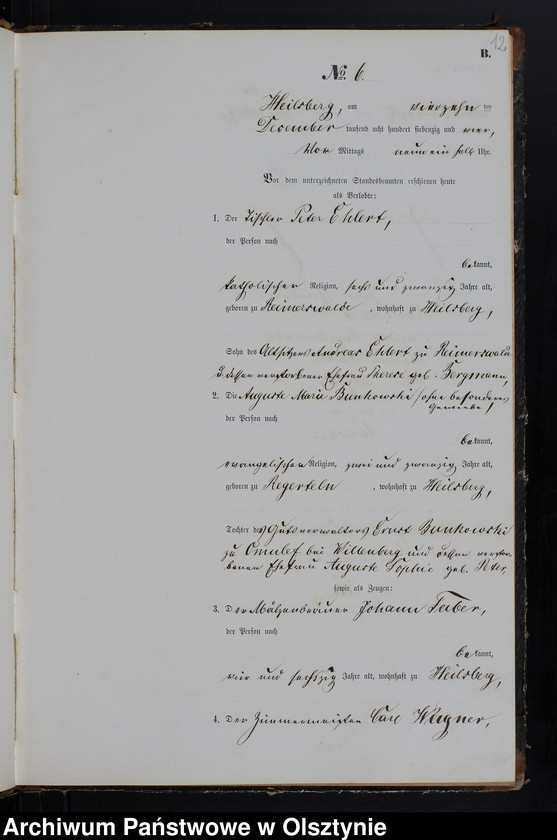 12
B.
No. 6.
Heilsberg, am vierzehn ten
December tausend acht hundert siebenzig und vier,
Vor Mittags neun ein halb Uhr.
Vor dem unterzeichneten Standesbeamten erschienen heute
als Verlobte:
1. Der Tischler Peter Ehlert,
der Person nach
bekannt,
katholischer Religion, sechs und zwanzig Jahre alt,
geboren zu Reimerswalde, wohnhaft zu Heilsberg,
Sohn des Altsitzers Andreas Ehlert zu Reimerswalde
u. dessen verstorbener Ehefrau Therese geb. Bergmann,
2. Die Auguste Marie Bunkowski /ohne besonderes
Gewerbe/
der Person nach
bekannt,
evangelischer Religion, zwei und zwanzig Jahre alt,
geboren zu Regerteln, wohnhaft zu Heilsberg,
Tochter des Gutsverwalters Ernst Bunkowski
zu Omulef bei Willenberg und dessen verstor-
benen Ehefrau Auguste Sophie geb. Peter,
sowie als Zeugen:
3. Der Mälzenbräuer Johann Teiber,
der Person nach
bekannt,
vier und sechszig Jahre alt, wohnhaft zu Heilsberg,
4. Der Zimmermeister Carl Wagner,
Archiwum Państwowe w Olsztynie